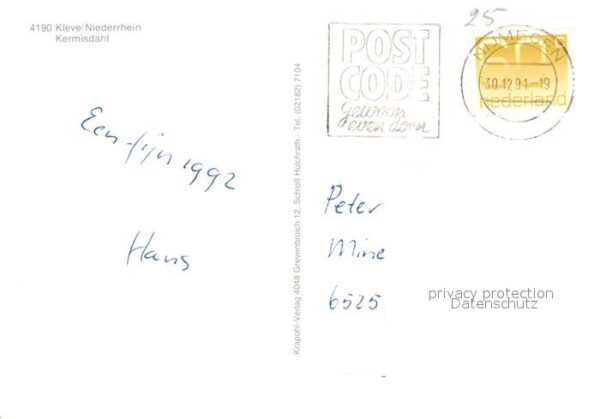 4190 Kleve/Niederrhein
Kermisdahl
25
POST
CODE
gewoon
even doen
NIJMEGEN
30.12.91-19
nederland
Een fijn 1992
Hans
Krapohl-Verlag 4048 Grevenbroich 12, Schloß Hülchrath - Tel. (02182) 7104
Peter
Mine
6525
privacy protection
Datenschutz